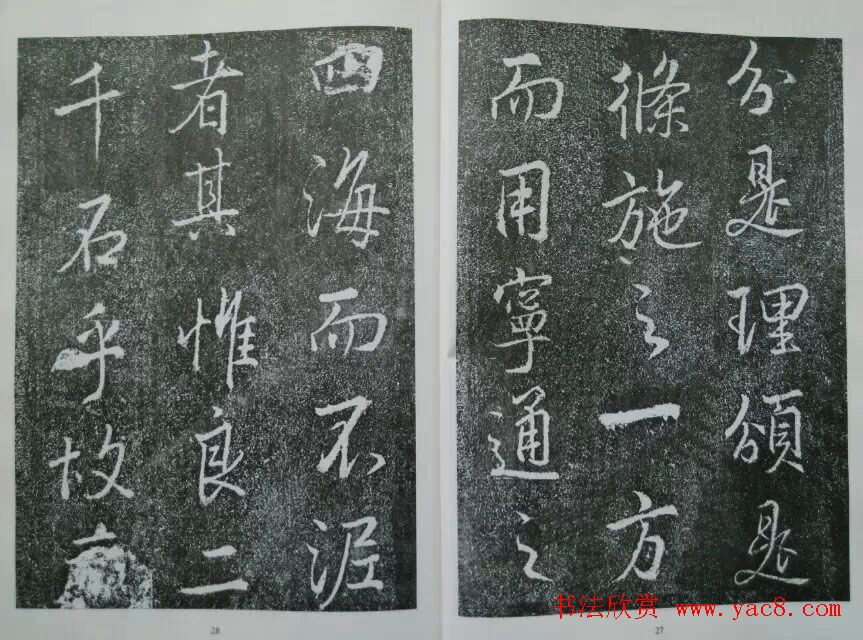 分是理頒是
條施之一方
而用寧通之
四海而不泥
者其惟良二
千石乎故
书法欣赏 www.yac8.com
28
27